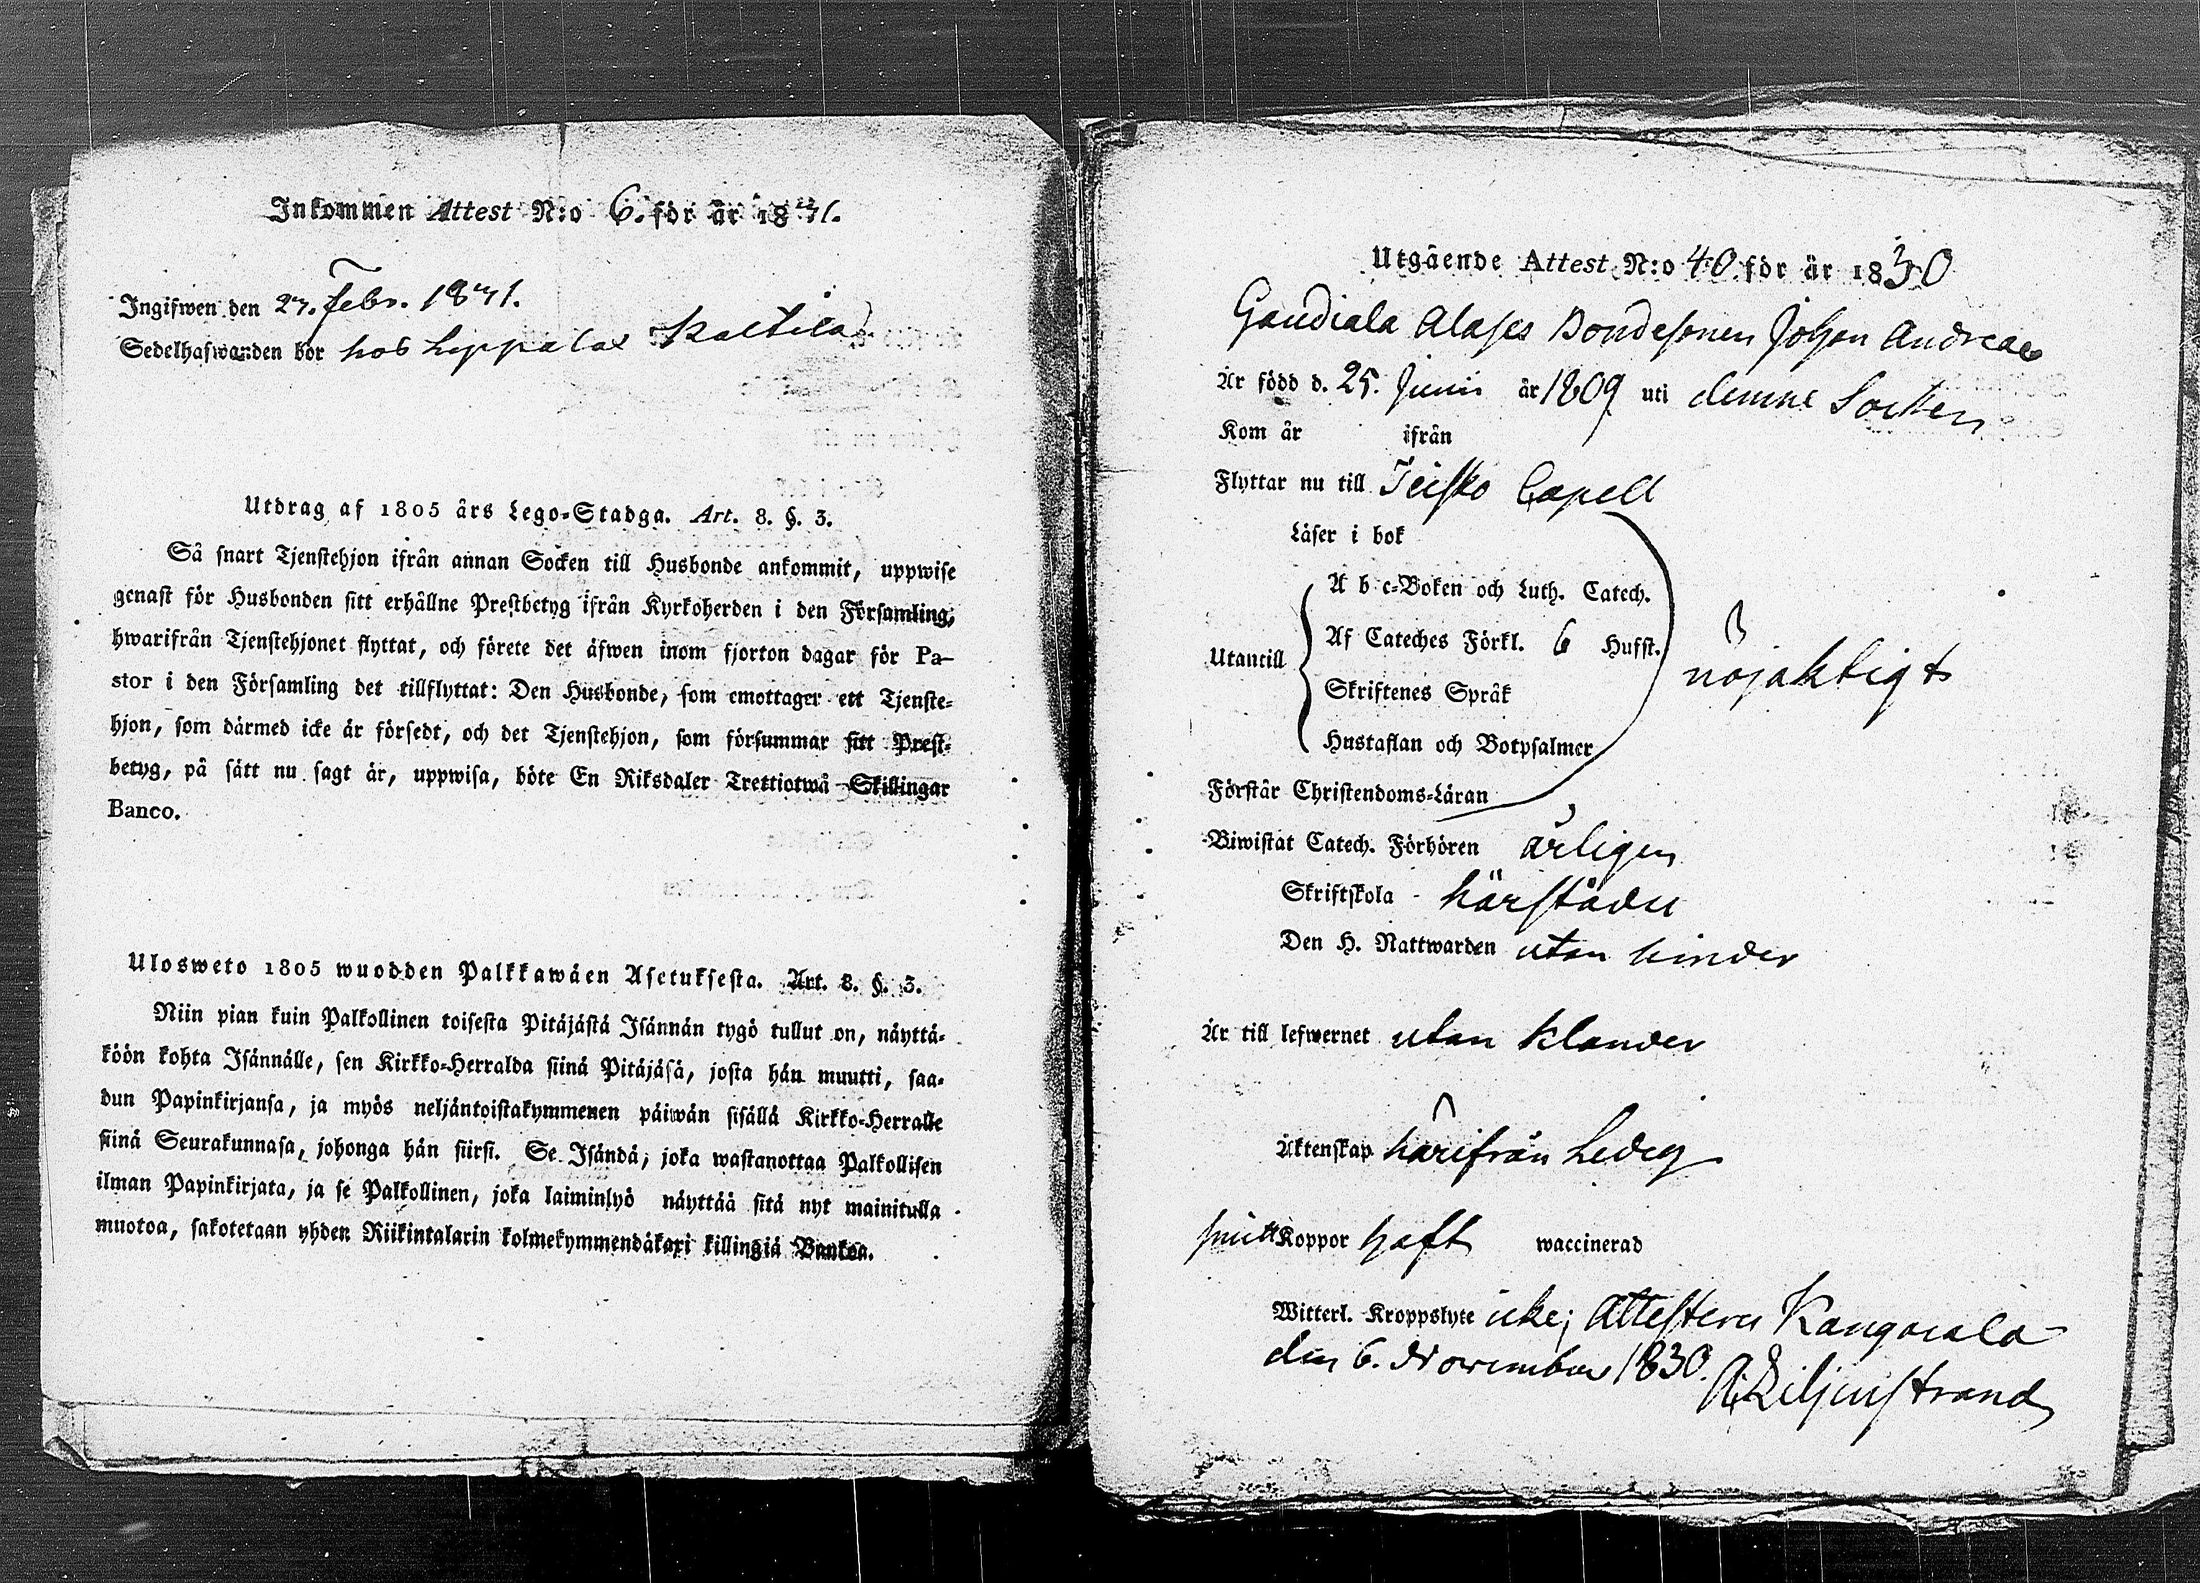 Inkommen Attest N:o 6. för år 1831.
Ingifwen den 27. Febr. 1831.
Sedelhafwanden bor hos Leppälax Kaltila
Utdrag af 1805 års Lego-Stadga. Art. 8. §. 3.
Så snart Tjenstehjon ifrån annan Socken till Husbonde ankommit, uppwise
genast för Husbonden sitt erhållne Prestbetyg ifrån Kyrkoherden i den Församling,
hwarifrån Tjenstehjonet flyttat, och förete det äfwen inom fjorton dagar för Pa-
stor i den Församling det tillflyttat: Den Husbonde, som emottager ett Tjenste-
hjon, som därmed icke är försedt, och det Tjenstehjon, som försummar sitt Prest-
betyg, på sätt nu sagt är, uppwisa, böte En Riksdaler Trettiotwå Skillingar
Banco.
Ulosweto 1805 wuodden Palkkawäen Asetuksesta. Art. 8. §. 3.
Niin pian kuin Palkollinen toisesta Pitäjästä Isännän tygö tullut on, näyttä-
köön kohta Isännälle, sen Kirkko-Herralda siinä Pitäjäsä, josta hän muutti, saa-
dun Papinkirjansa, ja myös neljäntoistakymmenen päiwän sisällä Kirkko-Herralle
siinä Seurakunnasa, johonga hän siirsi. Se Isändä, joka wastanottaa Palkollisen
ilman Papinkirjata, ja se Palkollinen, joka laiminlyö näyttää sitä nyt mainitulla
muotoa, sakotetaan yhden Riikintalarin kolmekymmendäkaxi killingiä Bankoa.
Utgående Attest N:o 40 för år 1830
Gaudiala Alases Bondesonen Johan Andreae
Är född d. 25. Junii år 1809 uti denne Socken
Kom år ifrån
Flyttar nu till Teisko Capell
Läser i bok
A b c-Boken och Luth. Catech.
Utantill Af Cateches Förkl. 6 Hufst. nöjaktigt
Skriftenes Språk
Hustaflan och Botpsalmer
Förstår Christendoms-Läran
Biwistat Catech. Förhören årligen
Skriftskola härstädes
Den H. Nattwarden utan hinder
Är till lefwernet utan klander
Äktenskap härifrån Ledig
Koppor haft waccinerad
Witterl. Kroppslyte icke; Attesterar Kangasala
den 6. November 1830. A. Liljenstrand